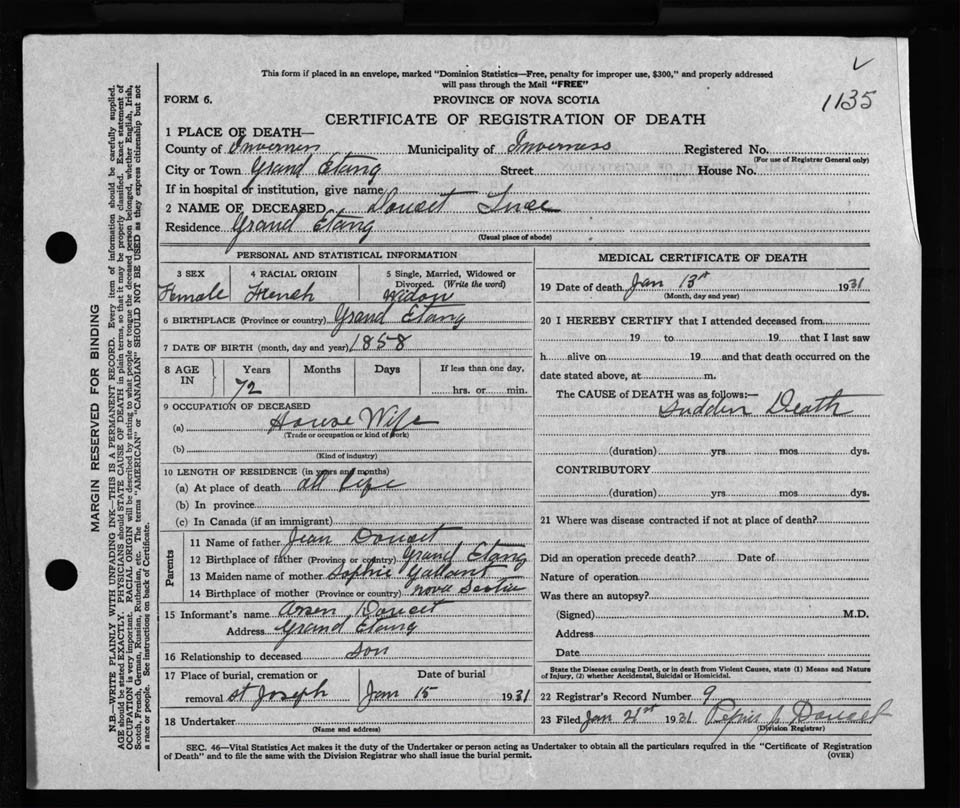 This form if placed in an envelope, marked "Dominion Statistics—Free, penalty for improper use, $300," and properly addressed
will pass through the Mail "FREE"
FORM 6.
PROVINCE OF NOVA SCOTIA
1135
CERTIFICATE OF REGISTRATION OF DEATH
1 PLACE OF DEATH—
County of Inverness Municipality of Inverness Registered No.
(For use of Registrar General only)
City or Town Grand Etang Street House No.
If in hospital or institution, give name
2 NAME OF DECEASED Doucet
Residence Grand Etang
(Usual place of abode)
PERSONAL AND STATISTICAL INFORMATION
3 SEX 4 RACIAL ORIGIN 5 Single, Married, Widowed or
Divorced. (Write the word)
Female French Widow
6 BIRTHPLACE (Province or country) Grand Etang
7 DATE OF BIRTH (month, day and year) 1858
8 AGE IN Years Months Days If less than one day,
72 hrs. or min.
9 OCCUPATION OF DECEASED
(a) House Wife
(Trade or occupation or kind of work)
(b)
(Kind of industry)
10 LENGTH OF RESIDENCE (in years and months)
(a) At place of death all life
(b) In province
(c) In Canada (if an immigrant)
Parents
11 Name of father Jean Doucet
12 Birthplace of father (Province or country) Grand Etang
13 Maiden name of mother Sophie Gallant
14 Birthplace of mother (Province or country) Nova Scotia
15 Informant's name Arsen Doucet
Address Grand Etang
16 Relationship to deceased Son
17 Place of burial, cremation or Date of burial
removal St Joseph Jan 15 1931
18 Undertaker
(Name and address)
MEDICAL CERTIFICATE OF DEATH
19 Date of death Jan 13 1931
(Month, day and year)
20 I HEREBY CERTIFY that I attended deceased from
19 to 19 that I last saw
h alive on 19 and that death occurred on the
date stated above, at m.
The CAUSE of DEATH was as follows:—
Sudden Death
(duration) yrs. mos. dys.
CONTRIBUTORY
(duration) yrs mos dys.
21 Where was disease contracted if not at place of death?
Did an operation precede death? Date of
Nature of operation
Was there an autopsy?
(Signed) M.D.
Address
Date
State the Disease causing Death, or in death from Violent Causes, state (1) Means and Nature
of Injury, (2) whether Accidental, Suicidal or Homicidal.
22 Registrar's Record Number 9
23 Filed Jan 21st 1931 J. Doucet
(Division Registrar)
SEC. 46—Vital Statistics Act makes it the duty of the Undertaker or person acting as Undertaker to obtain all the particulars required in the "Certificate of Registration
of Death" and to file the same with the Division Registrar who shall issue the burial permit. (OVER)
MARGIN RESERVED FOR BINDING
N.B.—WRITE PLAINLY WITH UNFADING INK—THIS IS A PERMANENT RECORD. Every item of information should be carefully supplied.
AGE should be stated EXACTLY. PHYSICIANS should STATE CAUSE OF DEATH in plain terms, so that it may be properly classified. Exact statement of
OCCUPATION is very important. RACIAL ORIGIN will be described by stating to what people or tongue the deceased person belonged, whether English, Irish,
Scotch, French, German, Russian, Ruthenian, etc. The terms "AMERICAN" or "CANADIAN" SHOULD NOT BE USED as they express citizenship but not
a race or people. See instructions on back of Certificate.